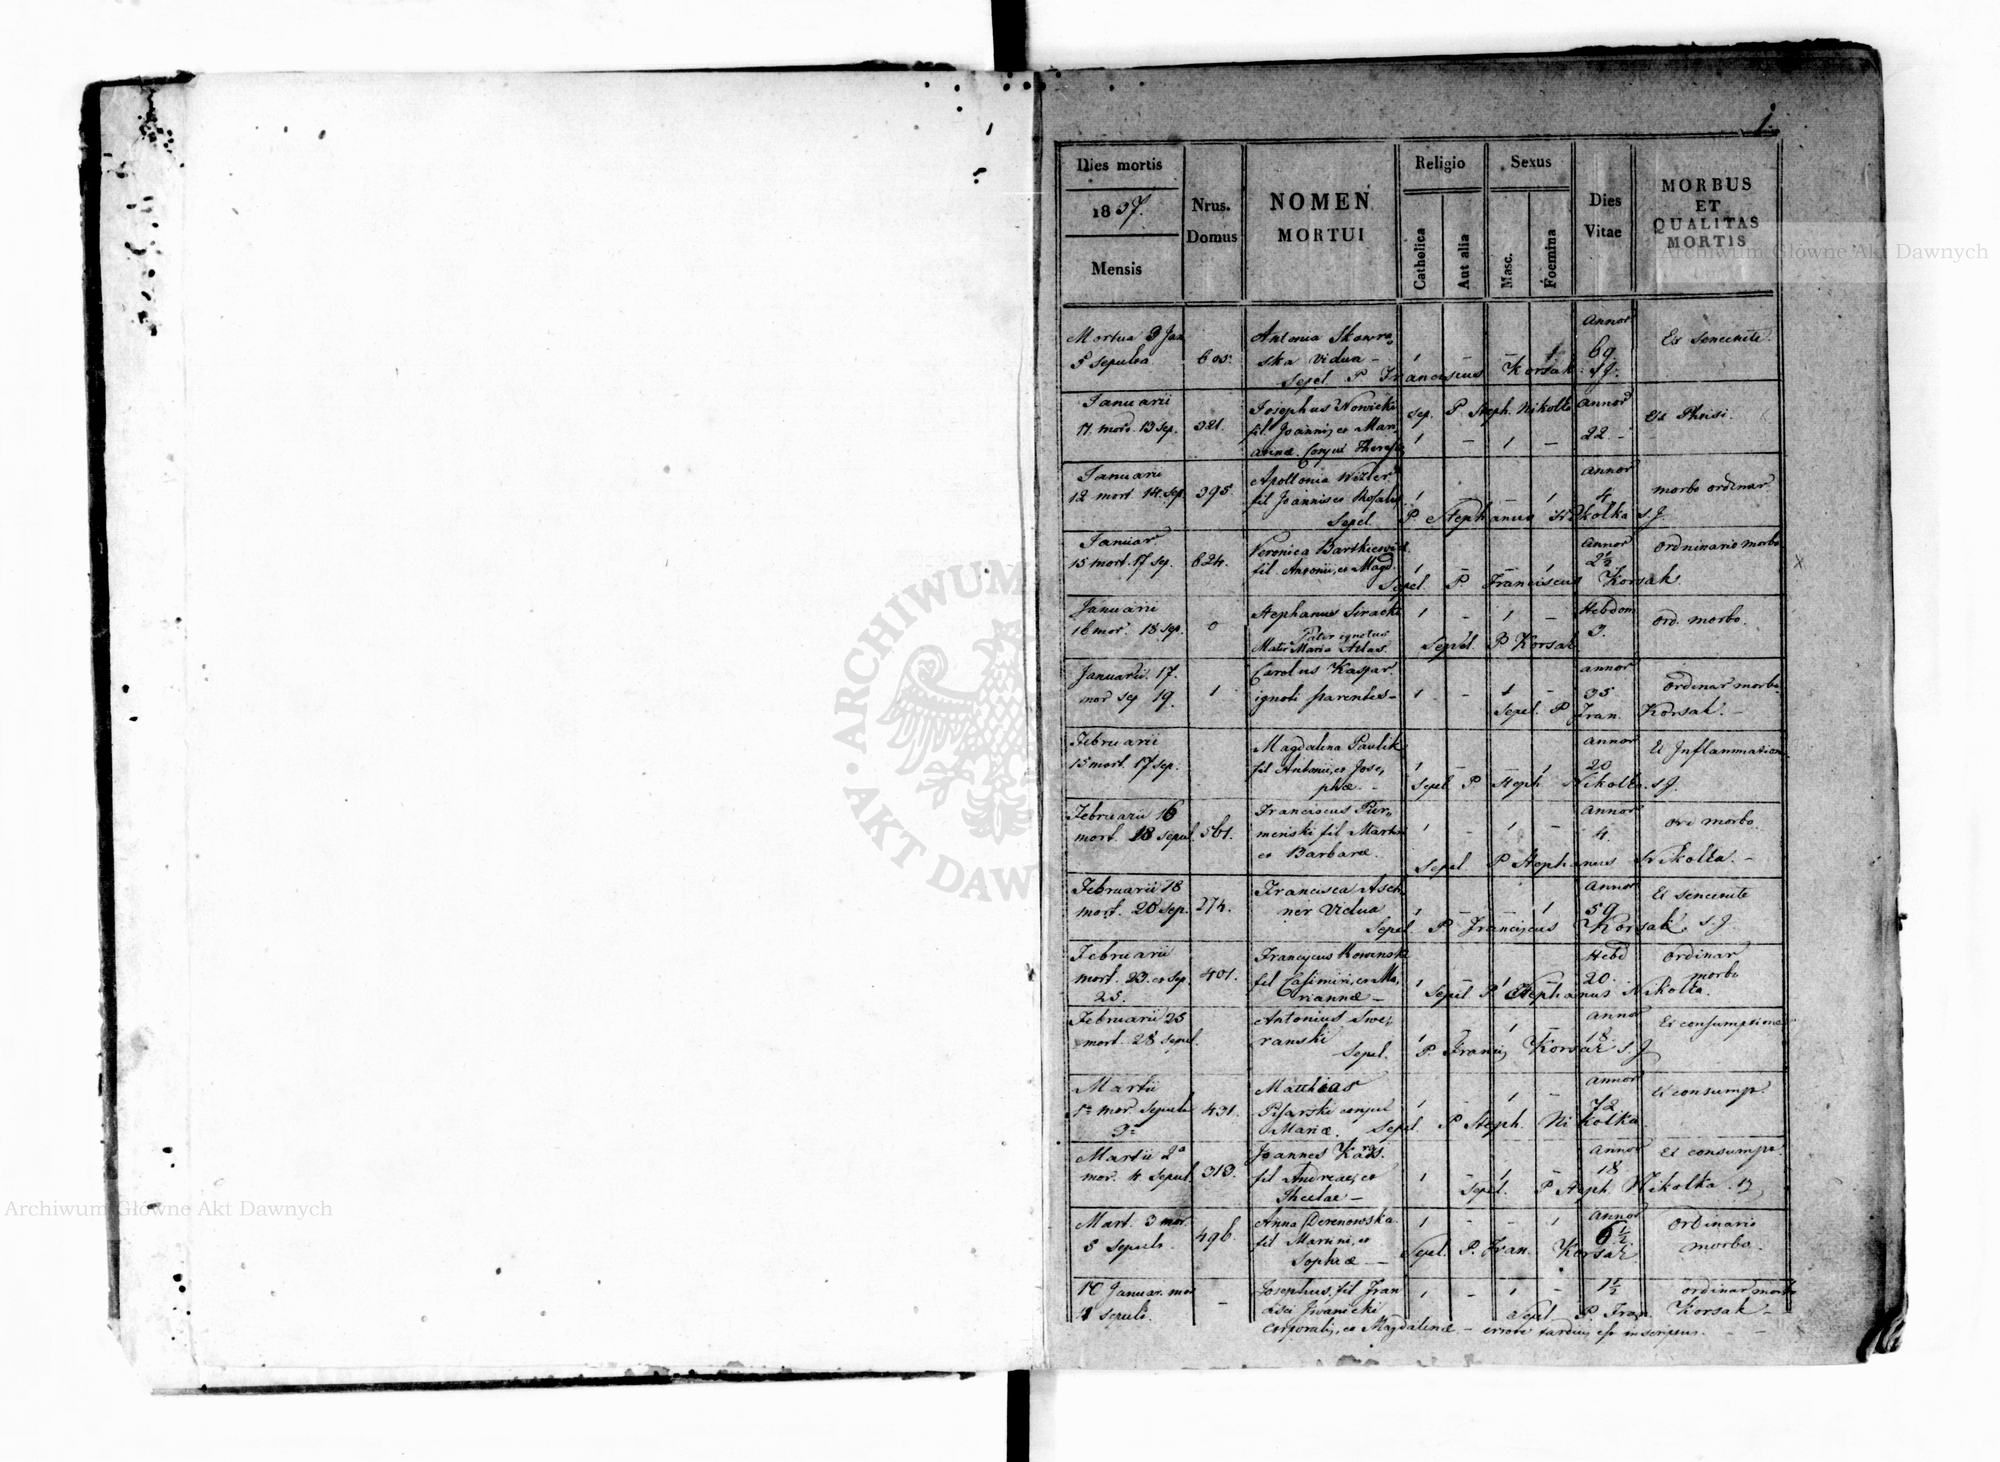 1.
Dies mortis
1837.
Mensis
Nrus.
Domus
NOMEN
MORTUI
Religio
Catholica
Aut alia
Sexus
Masc.
Foemina
Dies
Vitae
MORBUS
ET
QUALITAS
MORTIS
Mortua 3 Jan
5 sepulta 605.
Antonia Skowro,
ska Vidua – 1 – – 1
Sepel P Franciscus Korsak S.J.
Annor
69.
Ex senectute.
Januarii
11 mort. 13 sep. 321.
Josephus Nowicki
fil Joannis, et Mari
annae. Conjux Theresiae
sep. P Steph. Nikolka
1 – 1 –
Annor
22. –
Ex Phtisi
Januarii
12 mort 14. sep. 395.
Apollonia
fil Joannis et Rosaliae 1 – – 1
Sepel P Stephanus Nikolka s.J
Annor
4
morbo ordinar.
Januar
15 mort. 17 sep. 624.
Veronica Bartkiewicz
fil. Antonii, et Magd. 1 – – 1
Sepel. P. Franciscus Korsak
Annor
2½
Ordninario morbo
Januarii
16 mor. 18 sep. 0
Stephanus Siracki 1 – 1 –
Pater ignotus
Mater Maria Atlas.
Sepel. P Korsak
Hebdom
3.
ord. morbo.
Januarii. 17.
mor sep 19. 1
Carolus Kaspar.
ignoti parentes – 1 – 1 –
Sepel. P Fran. Korsak. –
annor
35
Ordinar morbo
Februarii
15 mort. 17 sep.
Magdalena Pavlik
fil Antonii, et Jose,
phae. – 1 – – 1
Sepel P Steph Nikolka. s.J.
annor
20
Ex Inflammation
Februarii 16
mort. 18 sepul. 561.
Franciscus Pier,
menski fil Martini
et Barbarae. 1 – 1 –
Sepel P Stephanus Nikolka. –
Annor
4.
ord morbo
Februarii 18
mort. 20 sep. 274.
Francisca Asch,
ner Vidua 1 – – 1
Sepel P Franciscus Korsak. s.J.
Annor
59
Ex senectute
Februarii
mort. 23. et sep. 401.
25.
Franciscus Kowinski
fil Casimiri, et Ma,
riannae – 1 – 1 –
Sepel P Stephanus Nikolka.
Hebd
20.
Ordinar
morbo
Februarii 25
mort. 28 sepul.
Antonius Swe,
ranski
Sepel. P. Francis Korsak S.J
1 – 1 –
Annor
18.
Ex consumptione
Martii
1a mor. Sepul. 431.
3a
Matthias
Pisarski conjux
Mariae. Sepel. P Steph. Nikolka
1 – 1 –
annor
72
Ex consump.
Martii 2a
mor. 4 sepul. 313.
Joannes Karas.
fil Andreae, et
Theclae – 1 – 1 –
Sepel. P Steph Nikolka.
Annor
18
Ex consumpt.
Mart. 3 mor.
5 sepult. 496.
Anna Derenowska
fil Martini, et
Sophiae – 1 – – 1
Sepel. P. Fran. Korsak
Annor
6½
Ordinario
morbo.
10 Januar. mor
sepult. –
Josephus. fil Fran
cisci Iwanicki
corporalis, et Magdalenae – errore tardius est inscriptus. –
1 – 1 –
Sepel P. Fran Korsak –
1½
ordinar morbo
ARCHIWUM
AKT DAW
Archiwum Główne Akt Dawnych
Archiwum Główne Akt Dawnych